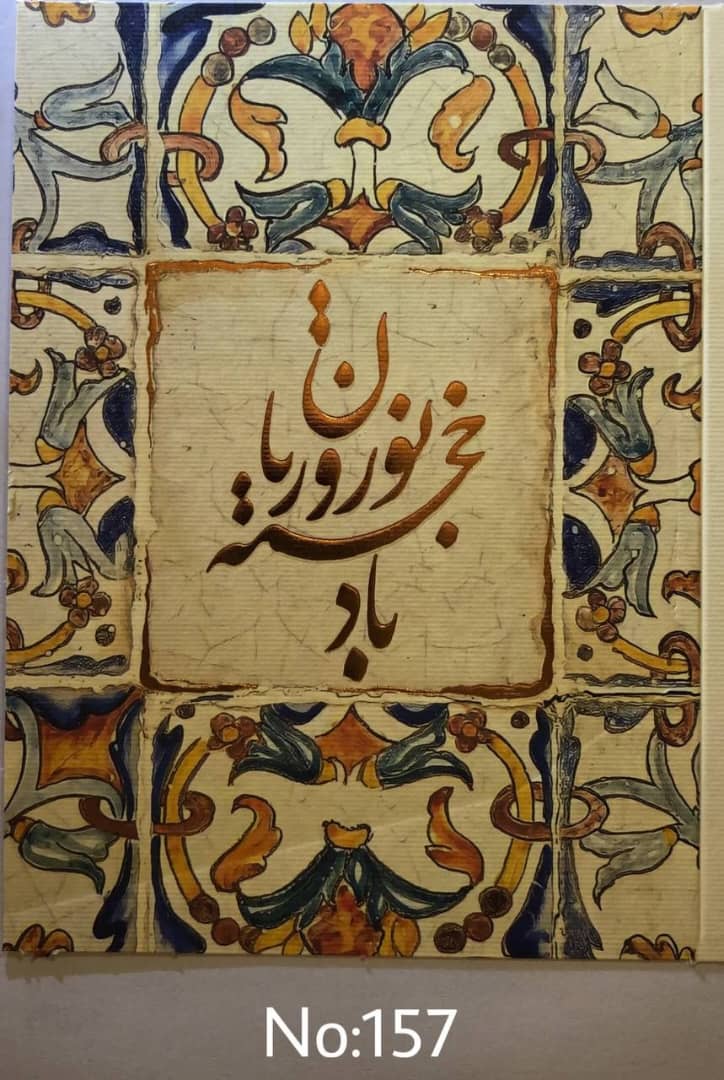 نوروزتان
خجسته
باد
No:157